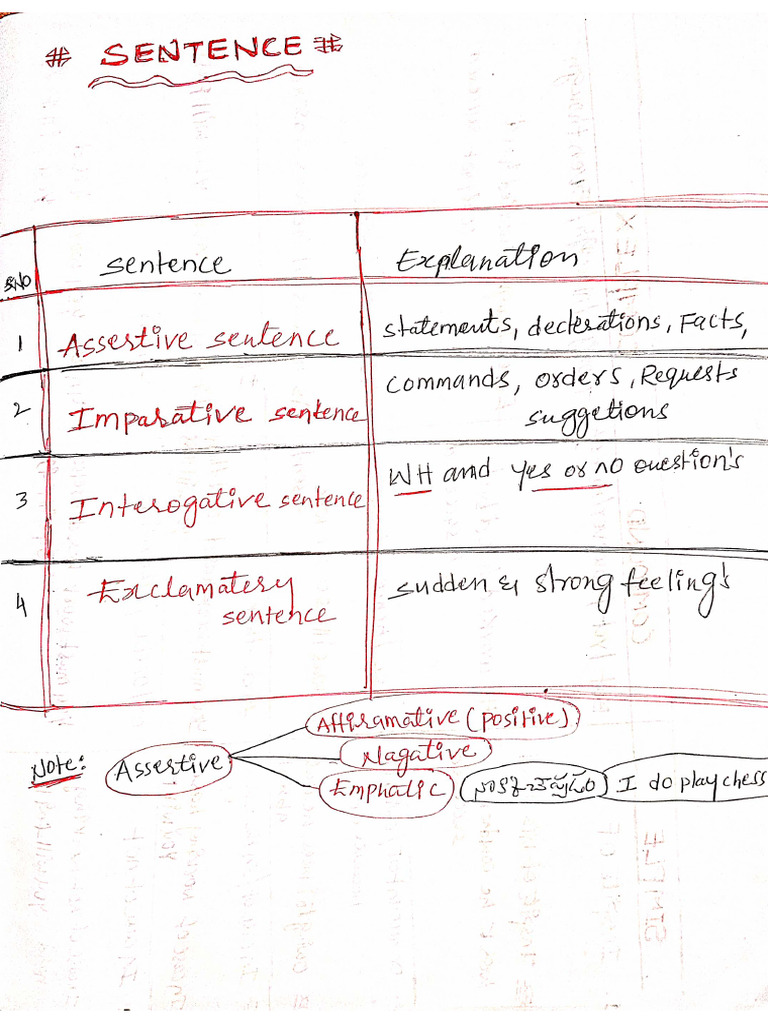 # SENTENCE #
S.NO sentence Explanation
1 Assertive sentence statements, declerations, Facts,
2 Imparative sentence Commands, orders, Requests
suggetions
3 Interogative sentence WH and yes or no question's
4 Exclamatery sentence sudden & strong feeling's
Note: Assertive
Affiramative (positive)
Nagative
Emphalic
I do play chess